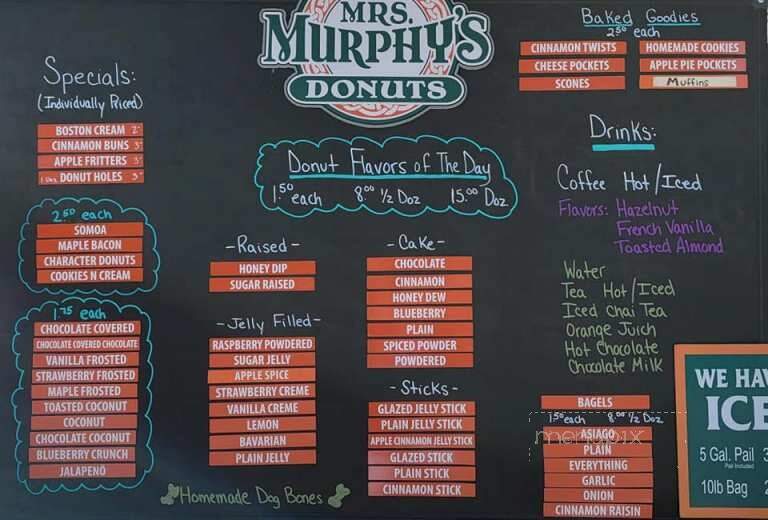 MRS.
MURPHY'S
DONUTS
Specials:
(Individually Priced)
BOSTON CREAM 2
CINNAMON BUNS 3
APPLE FRITTERS 3
DONUT HOLES 3
2.50 each
SOMOA
MAPLE BACON
CHARACTER DONUTS
COOKIES N CREAM
1.75 each
CHOCOLATE COVERED
CHOCOLATE COVERED CHOCOLATE
VANILLA FROSTED
STRAWBERRY FROSTED
MAPLE FROSTED
TOASTED COCONUT
COCONUT
CHOCOLATE COCONUT
BLUEBERRY CRUNCH
JALAPENO
Donut Flavors of The Day
1.50 each 8.00 1/2 Doz 15.00 Doz
-Raised-
HONEY DIP
SUGAR RAISED
-Jelly Filled-
RASPBERRY POWDERED
SUGAR JELLY
APPLE SPICE
STRAWBERRY CREME
VANILLA CREME
LEMON
BAVARIAN
PLAIN JELLY
Homemade Dog Bones
-Cake-
CHOCOLATE
CINNAMON
HONEY DEW
BLUEBERRY
PLAIN
SPICED POWDER
POWDERED
-Sticks-
GLAZED JELLY STICK
PLAIN JELLY STICK
APPLE CINNAMON JELLY STICK
GLAZED STICK
PLAIN STICK
CINNAMON STICK
Baked Goodies
2.50 each
CINNAMON TWISTS
CHEESE POCKETS
SCONES
HOMEMADE COOKIES
APPLE PIE POCKETS
Muffins
Drinks:
Coffee Hot/Iced
Flavors: Hazelnut
French Vanilla
Toasted Almond
Water
Tea Hot/Iced
Iced Chai Tea
Orange Juich
Hot Chocolate
Chocolate Milk
BAGELS
1.50 each 8.00 1/2 Doz
ASIAGO
PLAIN
EVERYTHING
GARLIC
ONION
CINNAMON RAISIN
menupix
WE HAV
ICE
5 Gal. Pail 3
Pail Included
10lb Bag 2